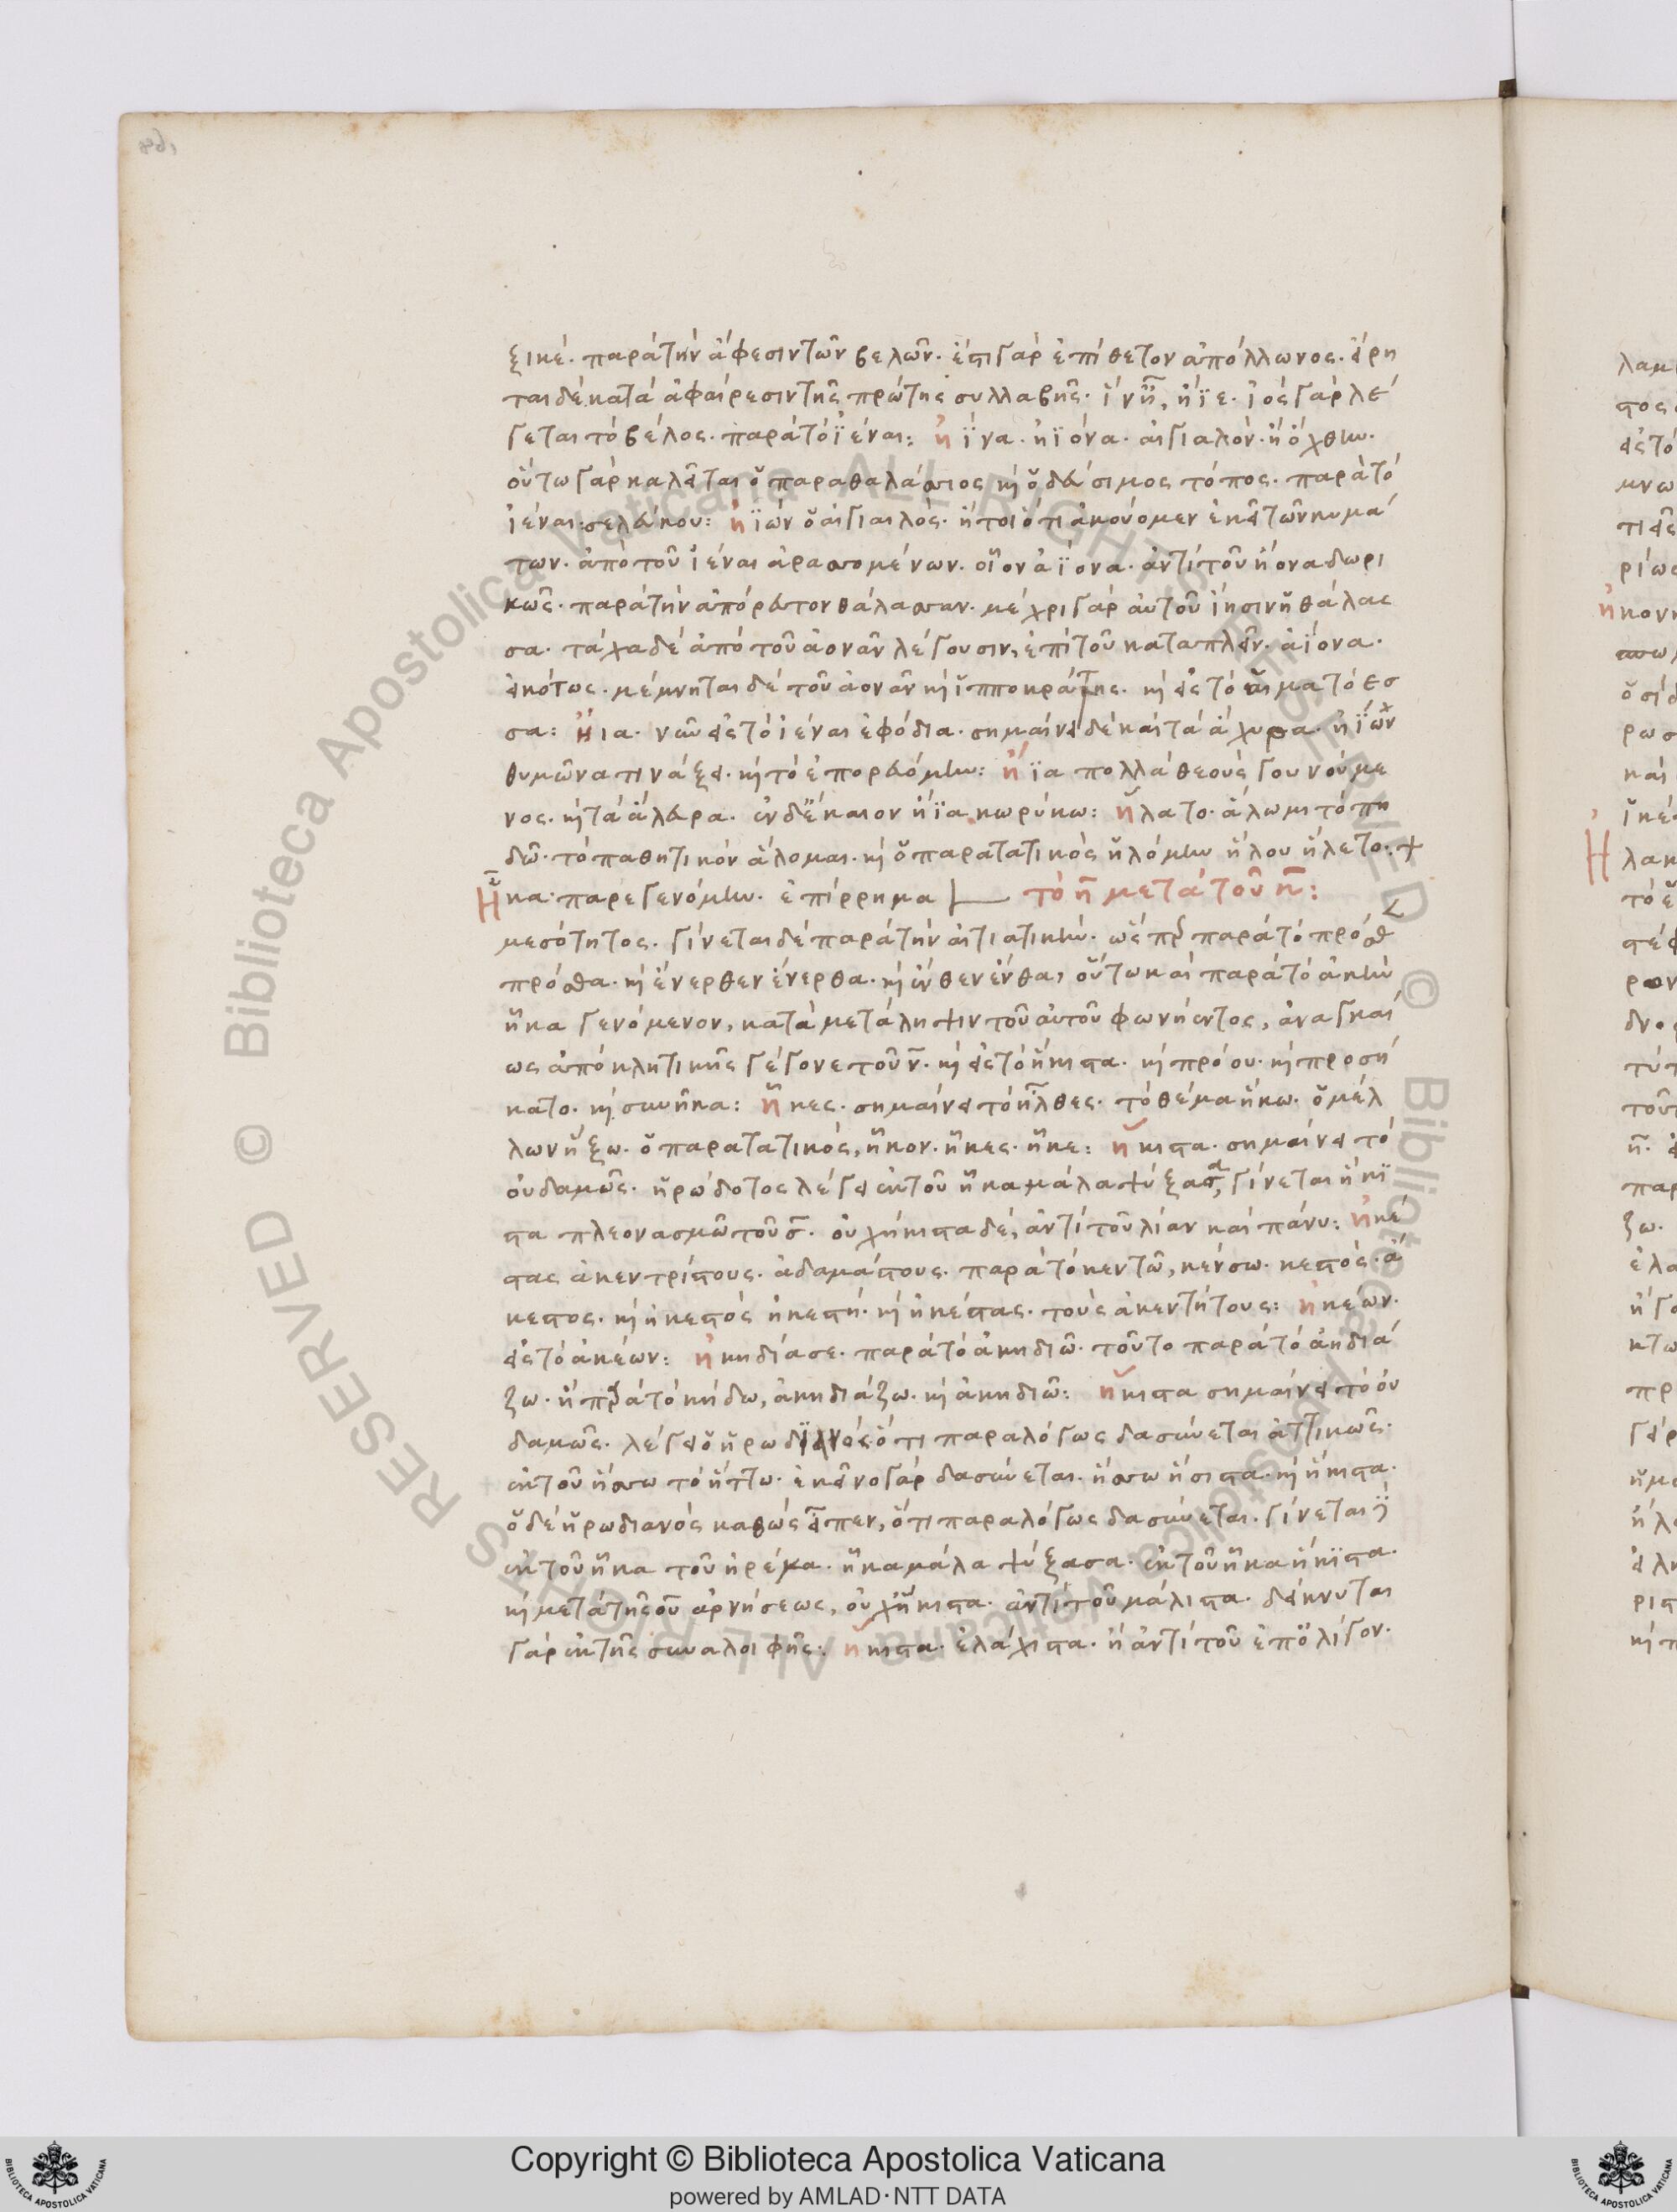 ξικέ. παρὰ τὴν ἄφεσιν τῶν βελῶν. ἔστι γὰρ ἐπίθετον ἀπόλλωνος. εἴρη
ται δὲ κατὰ ἀφαίρεσιν τῆς πρώτης συλλαβῆς. ἤϊε. ἰὸς γὰρ λέ
γεται τὸ βέλος. παρὰ τὸ ϊέναι: ἠϊόνα. αἰγιαλόν. ἢ ὄχθην.
οὕτω γὰρ καλεῖται ὁ παραθαλάσσιος καὶ ὁ τόπος. παρὰ τὸ
ἰέναι: ἠϊὼν ὁ αἰγιαλός. ἤτοι ὅτι ἀκούομεν ἐκεῖ τῶν κυμά
των. ἀπὸ τοῦ ἰέναι ἀρασσομένων. οἷον ἀϊόνα. ἀντὶ τοῦ ἠόνα δωρι
κῶς. παρὰ τὴν θάλασσαν. μέχρι γὰρ αὐτοῦ ἵησιν ἡ θάλασ
σα. τάχα δὲ ἀπὸ τοῦ ἀονᾶν λέγουσιν, ἐπὶ τοῦ καταπλεῖν. ἀϊόνα.
εἰκότως. μέμνηται δὲ τοῦ ἀονᾶν καὶ ἱπποκράτης. καὶ εἰς τὸ αἱματόεσ
σα: ἤια. εἰς τὸ ἰέναι ἐφόδια. σημαίνει δὲ καὶ τὰ ἄχυρα. ἠΐων
θυμῶνα τινάξει. καὶ τὸ ἐπορευόμην: ἤϊα πολλὰ θεοὺς γουνούμε
νος. καὶ τὰ ἄλευρα. ἐν δὲ καὶ ἤϊα κωρύκω: ἥλατο. ἅλωμι τὸ πη
δῶ. τὸ παθητικὸν ἅλομαι. καὶ ὁ παρατατικὸς ἡλόμην ἥλου ἥλετο.
Ἧκα. παρεγενόμην. ἐπίρρημα τὸ η μετὰ τοῦ κ:
μεσότητος. γίνεται δὲ παρὰ τὴν αἰτιατικήν. ὥσπερ παρὰ τὸ πρόσθε
πρόσθα. καὶ ἔνερθεν ἔνερθα. καὶ ἔνθεν ἔνθα, οὕτω καὶ παρὰ τὸ ἀκὴν
ἧκα γενόμενον, κατὰ μετάληψιν τοῦ αὐτοῦ φωνήεντος, ἀναγκαί
ως ἀπὸ κλητικῆς γέγονε τοῦ ν. καὶ εἰς τὸ ἥκιστα. καὶ πρόου. καὶ προσή
κατο. καὶ συνῆκα: ἧκες. σημαίνει τὸ ἦλθες. τὸ θέμα ἥκω. ὁ μέλ
λων ἥξω. ὁ παρατατικός, ἧκον. ἧκες. ἧκε: ἥκιστα. σημαίνει τὸ
οὐδαμῶς. ἡρόδοτος λέγει ἐκ τοῦ ἧκα μάλα ψύξασα, γίνεται ἥκι
στα πλεονασμῶ τοῦ σ. οὐχήκιστα δέ, ἀντὶ τοῦ λίαν καὶ πάνυ: ἠκέ
στας ἀκεντρίστους. ἀδαμάστους. παρὰ τὸ κεντῶ, κένσω. κεστός. ἄ
κεστος. καὶ ἠκεστὸς ἠκεστή. καὶ ἠκέστας. τοὺς ἀκεντήτους: ἠκέων.
εἰς τὸ ἀκέων: ἠκηδίασε. παρὰ τὸ ἀκηδιῶ. τοῦτο παρὰ τὸ ἀκηδιά
ζω. ἢ παρὰ τὸ κήδω, ἀκηδιάζω. καὶ ἀκηδιῶ: ἥκιστα σημαίνει τὸ οὐ
δαμῶς. λέγει ὁ ἡρωδιανὸς ὅτι παραλόγως δασύνεται ἀττικῶς.
ἐκ τοῦ ἥσσω τὸ ἥττω. ἐκεῖνο γὰρ δασύνεται. ἥσσω ἥσιστα. καὶ ἥκιστα.
ὁ δὲ ἡρωδιανὸς καθὼς εἶπεν, ὅτι παραλόγως δασύνεται. γίνεται
ἐκ τοῦ ἧκα τοῦ ἠρέμα. ἧκα μάλα ψύξασα. ἐκ τοῦ ἧκα ἥκιστα.
καὶ μετὰ τῆς οὐ ἀρνήσεως, οὐχ ἥκιστα. ἀντὶ τοῦ μάλιστα. δείκνυται
γὰρ ἐκ τῆς συναλοιφῆς: ἥκιστα. ἐλάχιστα. ἢ ἀντὶ τοῦ ἐπ' ὀλίγον.
Copyright © Biblioteca Apostolica Vaticana
powered by AMLAD·NTT DATA